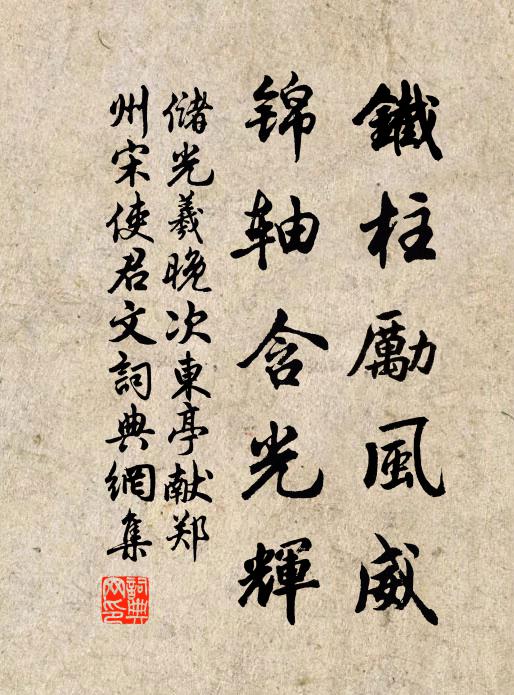 鐵柱勵風威
錦軸含光輝
儲光羲晚次東亭献郑
州宋使君文詞典網集
詞典
网印